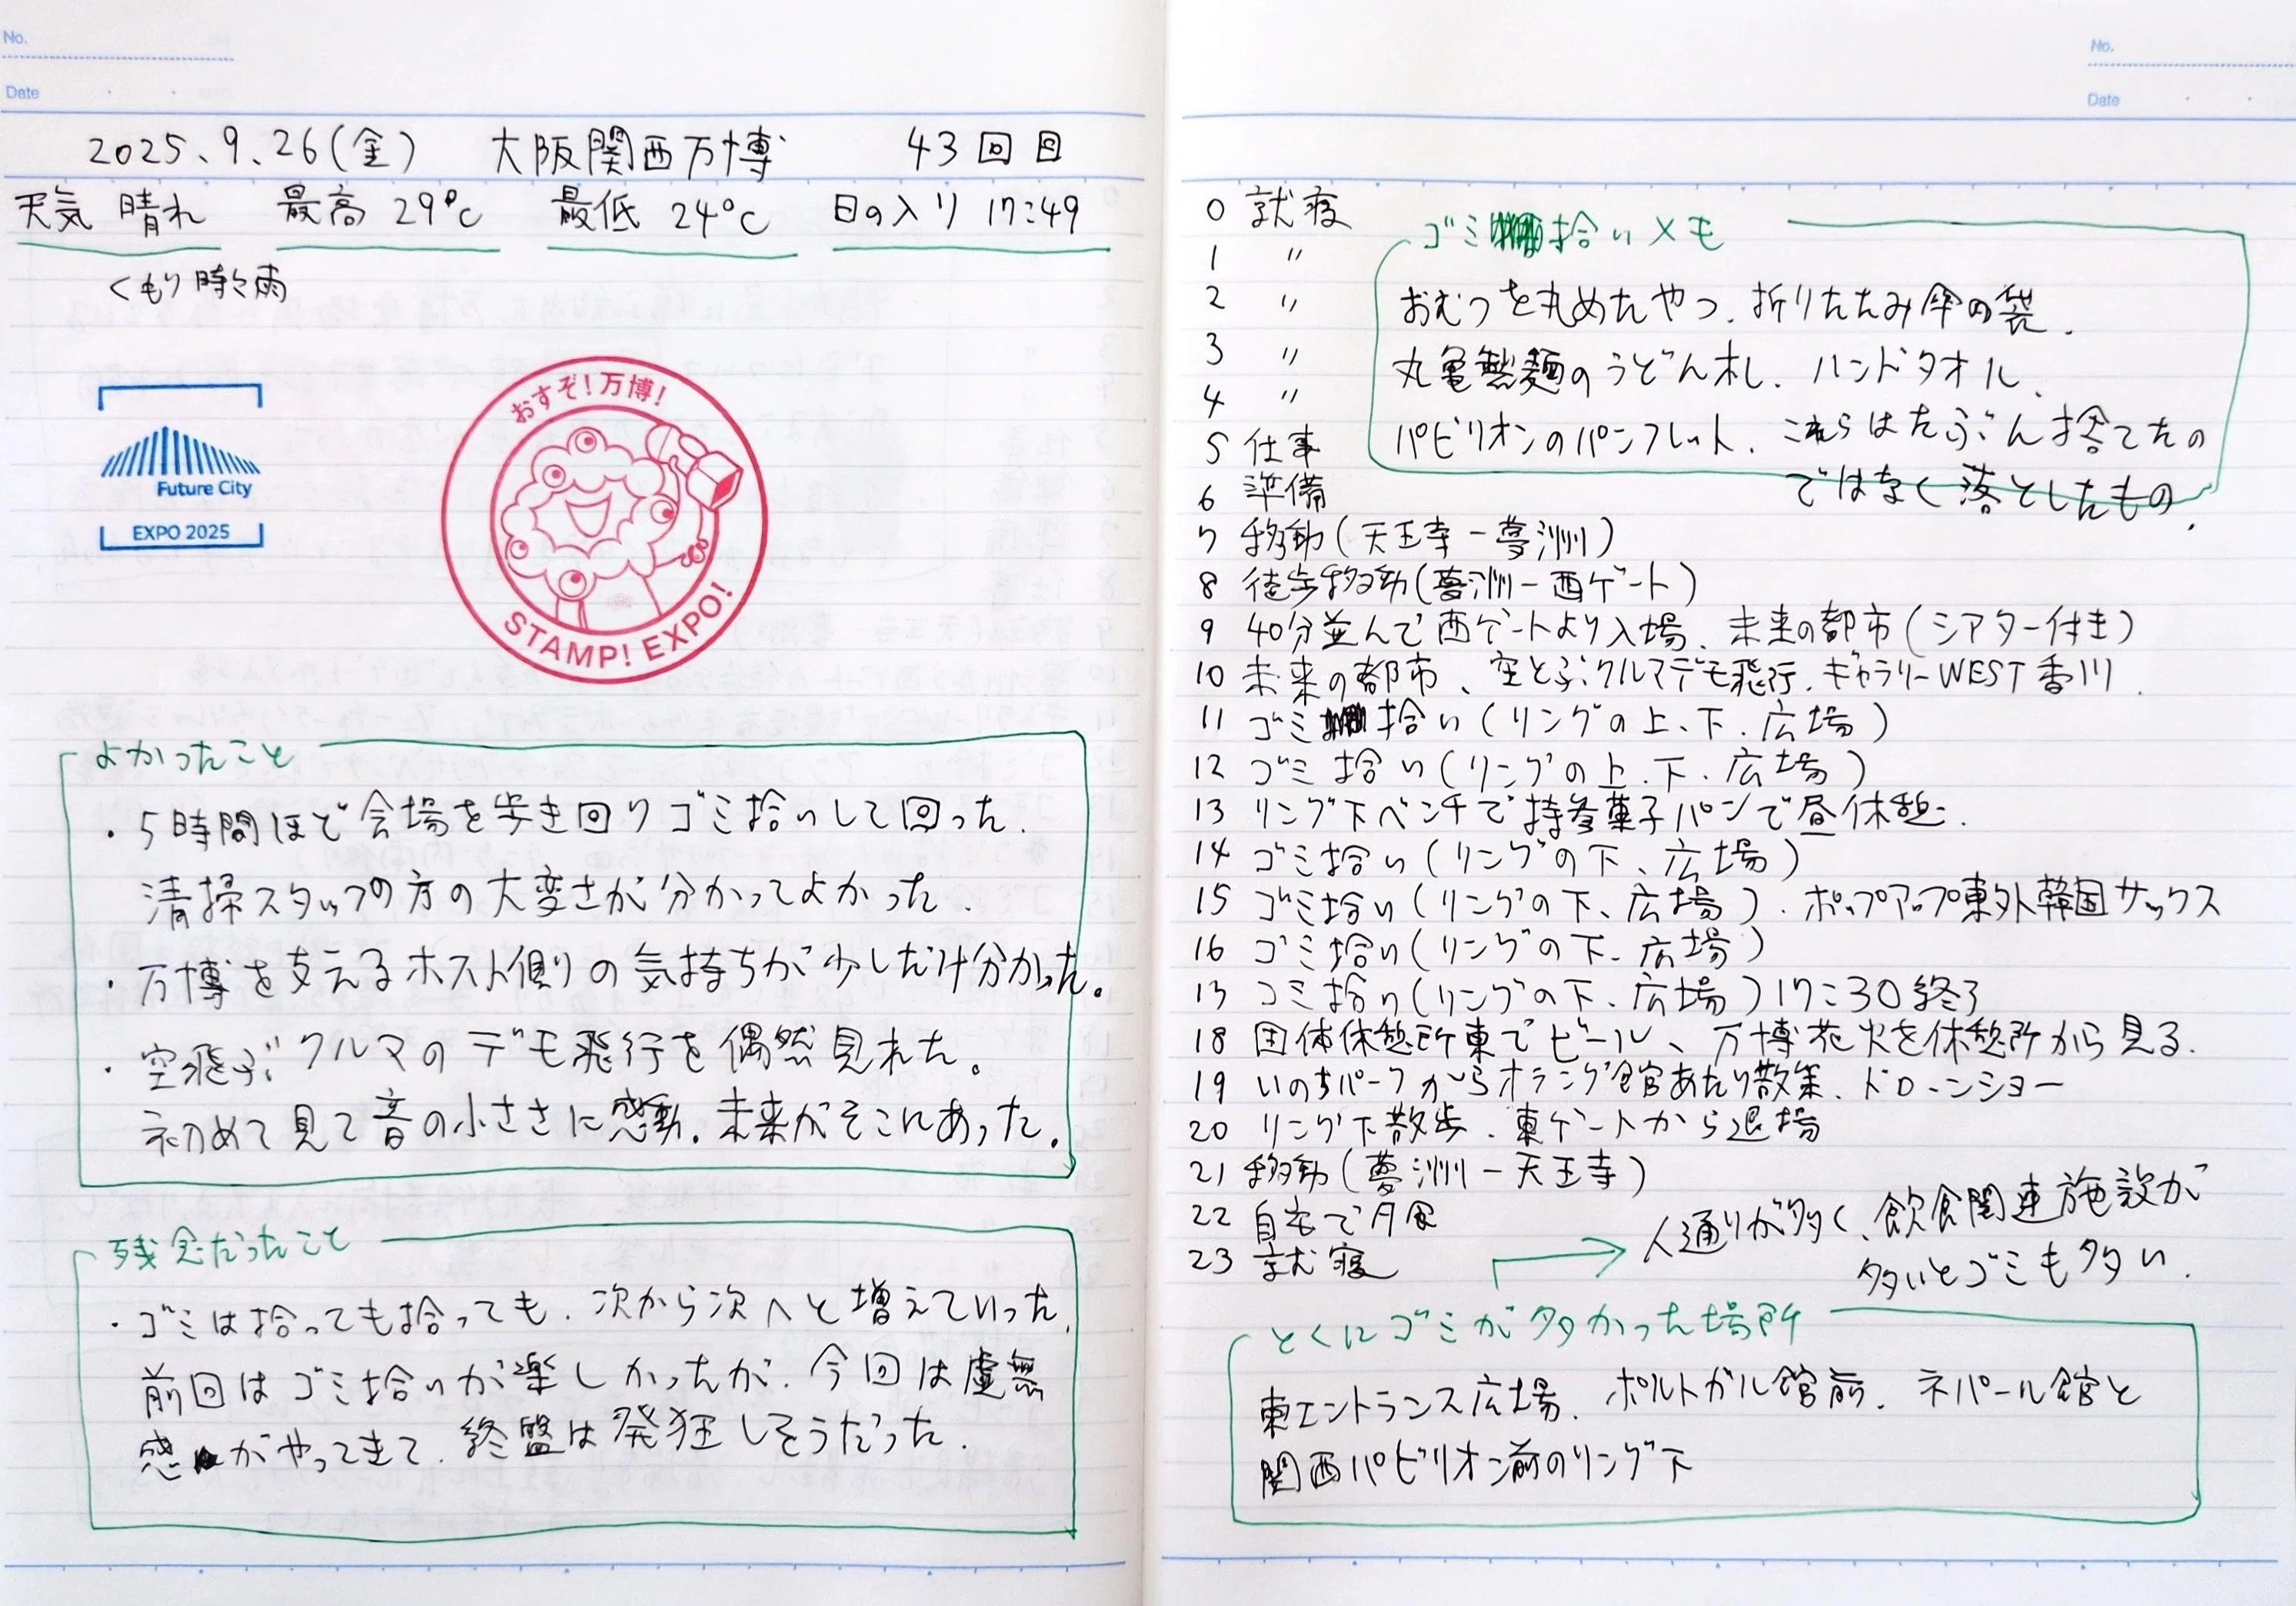 No.
Date
2025、9、26(金) 大阪関西万博 43回目
天気 晴れ 最高 29℃ 最低 24℃ 日の入り 17:49
くもり時々雨
Future City
EXPO 2025
おすぞ!万博!
STAMP! EXPO!
よかったこと
・5時間ほど会場を歩き回りゴミ拾いして回った.
清掃スタッフの方の大変さが分かってよかった.
・万博を支えるホスト側の気持ちが少しだけ分かった。
・空飛ぶクルマのデモ飛行を偶然見れた。
初めて見て音の小ささに感動。未来がそこにあった。
残念だったこと
・ゴミは拾っても拾っても、次から次へと増えていった.
前回はゴミ拾いが楽しかったが、今回は虚無
感がやってきて、終盤は発狂しそうだった.
No.
Date
0 就寝
1 〃
2 〃
3 〃
4 〃
5 仕事
6 準備
7 移動(天王寺-夢洲)
8 徒歩移動(夢洲-西ゲート)
9 40分並んで西ゲートより入場、未来の都市(シアター付き)
10 未来の都市、空とぶクルマデモ飛行、ギャラリーWEST香川.
11 ゴミ拾い(リングの上、下、広場)
12 ゴミ拾い(リングの上、下、広場)
13 リング下ベンチで持参菓子パンで昼休憩.
14 ゴミ拾い(リングの下、広場)
15 ゴミ拾い(リングの下、広場)、ポップアップ東外韓国サックス
16 ゴミ拾い(リングの下、広場)
17 ゴミ拾い(リングの下、広場)17:30終了
18 団体休憩所東でビール、万博花火を休憩所から見る.
19 いのちパークからオランダ館あたり散策、ドローンショー
20 リング下散歩、東ゲートから退場
21 移動(夢洲-天王寺)
22 自宅で夕食
23 就寝
ゴミ拾いメモ
おむつを丸めたやつ、折りたたみ傘の袋、
丸亀製麺のうどん札、ハンドタオル、
パビリオンのパンフレット、これらはたぶん捨てたの
ではなく落としたもの.
→人通りが多く、飲食関連施設が
多いとゴミも多い.
とくにゴミが多かった場所
東エントランス広場、ポルトガル館前、ネパール館と
関西パビリオン前のリング下